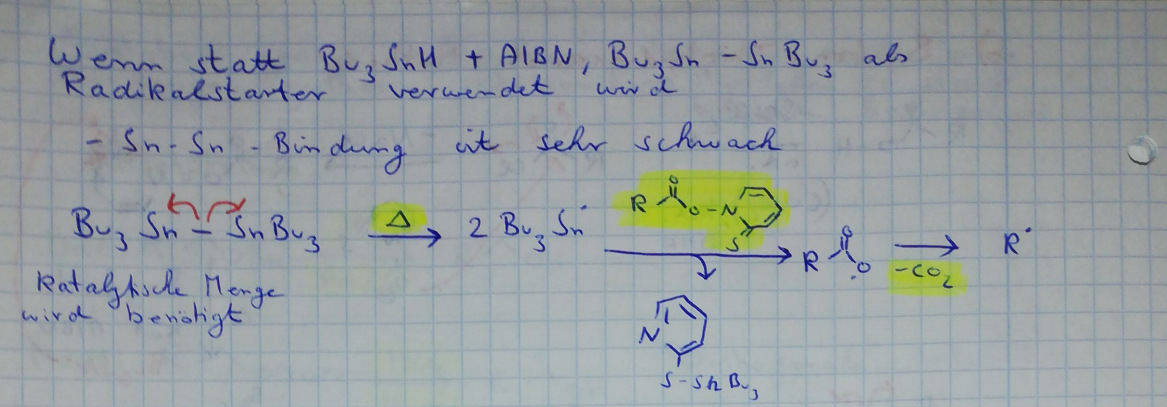 Wenn statt Bu₃SnH + AIBN, Bu₃Sn - SnBu₃ als
Radikalstarter verwendet wird
- Sn-Sn-Bindung ist sehr schwach
Bu₃Sn - SnBu₃ Δ 2 Bu₃Sn˙ R O O-N S R O O˙ -CO₂ R˙
Katalytische Menge
wird benötigt
N
S-SnBu₃